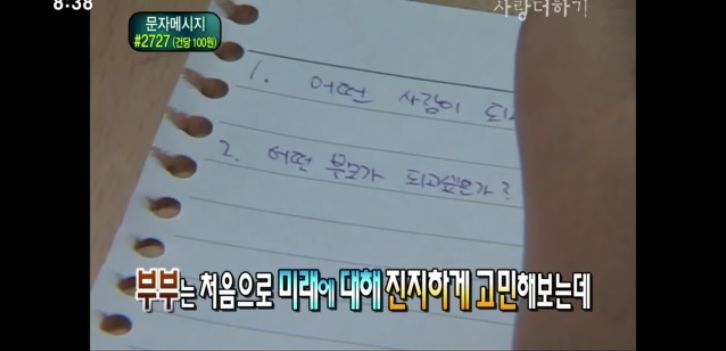 8:38
사랑더하기
문자메시지
#2727 (건당 100원)
1. 어떤 사람이 되
2. 어떤 부모가 되고싶은가?
부부는 처음으로 미래에 대해 진지하게 고민해보는데